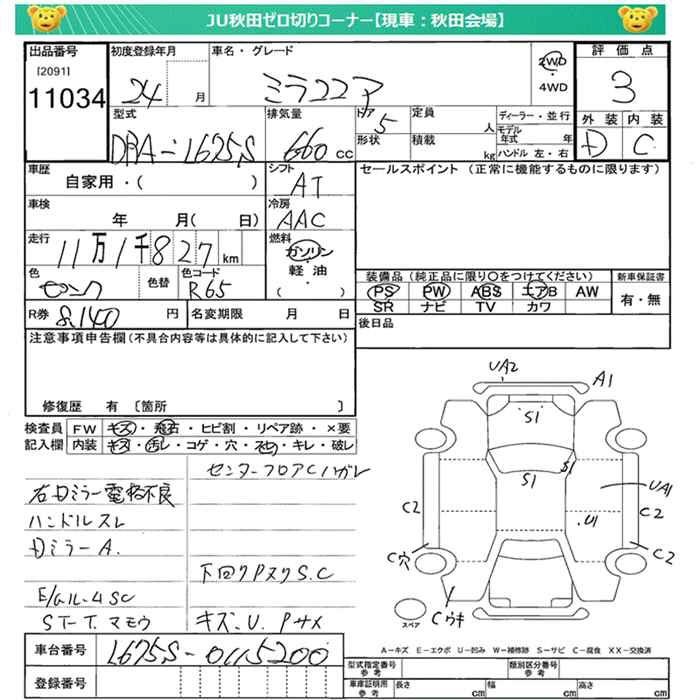 JU秋田ゼロ切りコーナー【現車：秋田会場】
出品番号
[2091]
11034
初度登録年月
24 月
車名・グレード
ミラココア
2WD
・
4WD
評価点
3
外装 内装
D C
型式
DBA-L675S
排気量
660 cc
ドア
5
形状
定員
人
積載
kg
ディーラー・並行
モデル年式 年
ハンドル 左・右
車歴
自家用・( )
シフト
AT
車検
年 月( 日)
冷房
AAC
走行
11万1千827km
燃料
ガソリン
軽油
( )
色
ピンク
色替
色コード
R65
R券 8140 円
名変期限 月 日
セールスポイント (正常に機能するものに限ります)
装備品(純正品に限り○をつけてください)
PS PW ABS エアB AW
SR ナビ TV カワ
新車保証書
有・無
後日品
注意事項申告欄(不具合内容等は具体的に記入して下さい)
修復歴 有 〔箇所 〕
検査員記入欄
FW キズ・飛石・ヒビ割・リペア跡・×要
内装 キズ・汚レ・コゲ・穴・スレ・キレ・破レ
センターフロアCハガレ
右Dミラー電格不良
ハンドルスレ
DミラーA.
下回りPヌリS.C
E/gルームSC
ST-T.マモウ
キズ・U.Pサメ
UA2
A1
S1
S1
S1
UA1
C2
C2
.U1
C穴
C2
Cウキ
スペア
A-キズ E-エクボ U-凹み W-補修跡 S-サビ C-腐食 XX-交換済
車台番号
L675S-0115200
登録番号
型式指定番号
参考
類別区分番号
参考
車庫証明用
参考
長さ cm
幅 cm
高さ cm